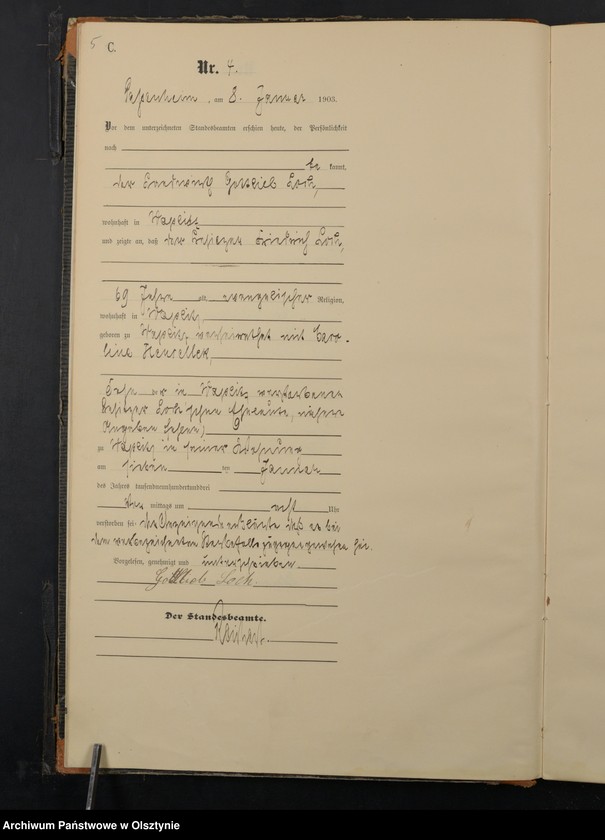 5 C.
Nr. 4.
am 8. Januar 1903.
Vor dem unterzeichneten Standesbeamten erschien heute, der Persönlichkeit
nach
be kannt,
der Landwirth Gottlieb Loch,
wohnhaft in Waplitz
und zeigte an, daß der Besitzer Friedrich Loch,
69 Jahre alt, evangelischer Religion,
wohnhaft in Waplitz,
geboren zu Waplitz, verheirathet mit Caro-
line
Sohn der in Waplitz verstorbenen
Besitzer Loch'schen Eheleute, nähere
Angaben fehlen,
zu Waplitz in seiner Wohnung
am sieben ten Januar
des Jahres tausendneunhundertunddrei
Vor mittags um acht Uhr
verstorben sei: der Anzeigende erklärte daß er bei
dem vorbezeichneten Sterbefalle zugegen gewesen sei.
Vorgelesen, genehmigt und unterschrieben
Gottlieb Loch.
Der Standesbeamte.
Archiwum Państwowe w Olsztynie